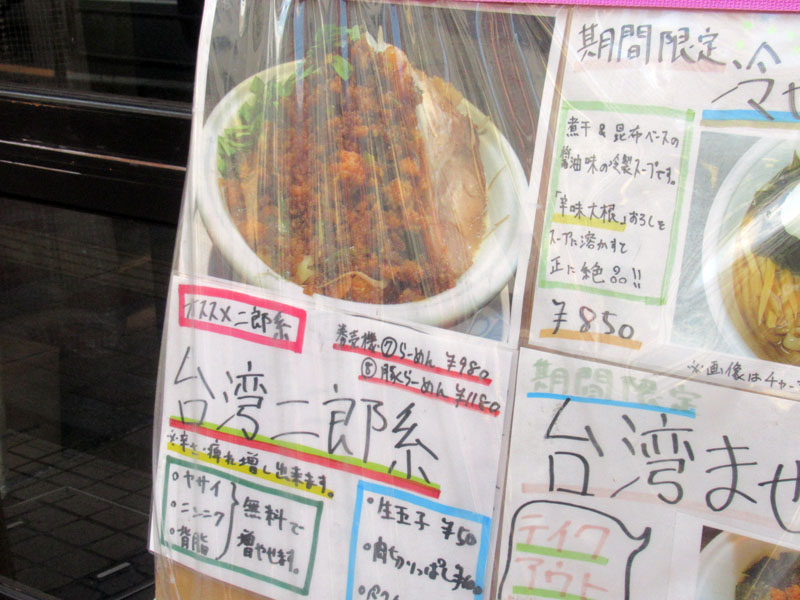 オススメ二郎系
券売機⑦らーめん ¥980
⑧豚らーめん ¥1180
台湾二郎系
※辛さ・痺れ増し出来ます。
・ヤサイ
・ニンニク
・背脂
無料で
増やせます。
・生玉子 ¥50
期間限定
冷
煮干&昆布ベースの
醤油味の冷製スープです。
「辛味大根」おろしを
スープに溶かすて
正に絶品!!
¥850
※画像はチャー
期間限定
台湾まぜ
テイク
アウト